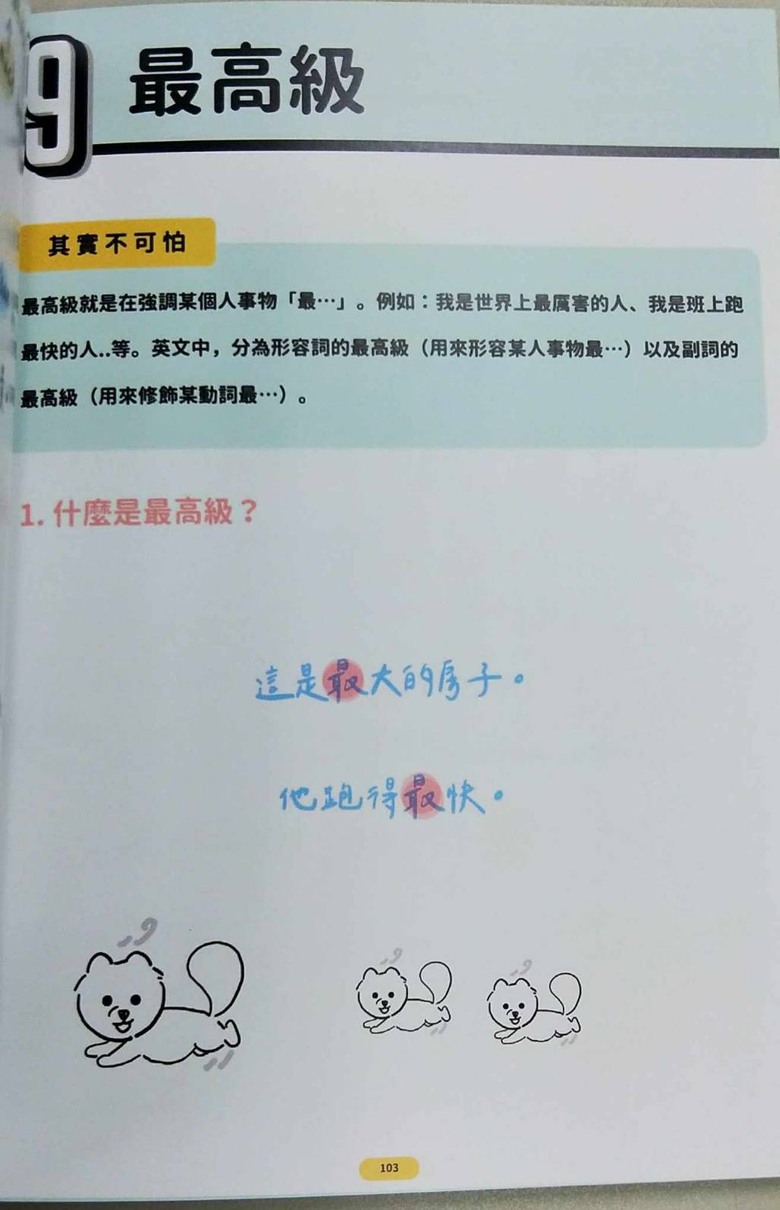 9 最高級
其實不可怕
最高級就是在強調某個人事物「最…」。例如：我是世界上最厲害的人、我是班上跑
最快的人..等。英文中，分為形容詞的最高級（用來形容某人事物最…）以及副詞的
最高級（用來修飾某動詞最…）。
1. 什麼是最高級？
這是最大的房子。
他跑得最快。
103